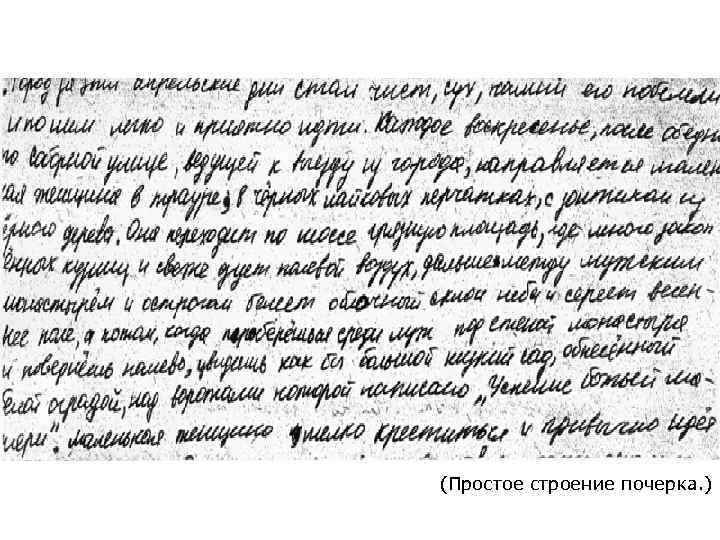 Город за эти апрельские дни стал чист, сух, камни его побелели
и по ним легко и приятно идти. Каждое воскресенье, после обедн
по Соборной улице, ведущей к выезду из города, направляется мален
кая женщина в трауре, в чёрных лайковых перчатках, с зонтиком из
ёрного дерева. Она переходит по шоссе грязную площадь, где много закоп
ённых кузниц и свеже дует полевой воздух, дальше между мужским
монастырём и острогом белеет облачный склон неба и сереет весен-
нее поле, а потом, когда проберёшься среди луж под стеной монастыря
и повернёшь налево, увидишь как бы большой низкий сад, обнесённый
белой оградой, над воротами которой написано „Успение божьей ма-
тери". маленькая женщина мелко креститься и привычно идёт
(Простое строение почерка.)